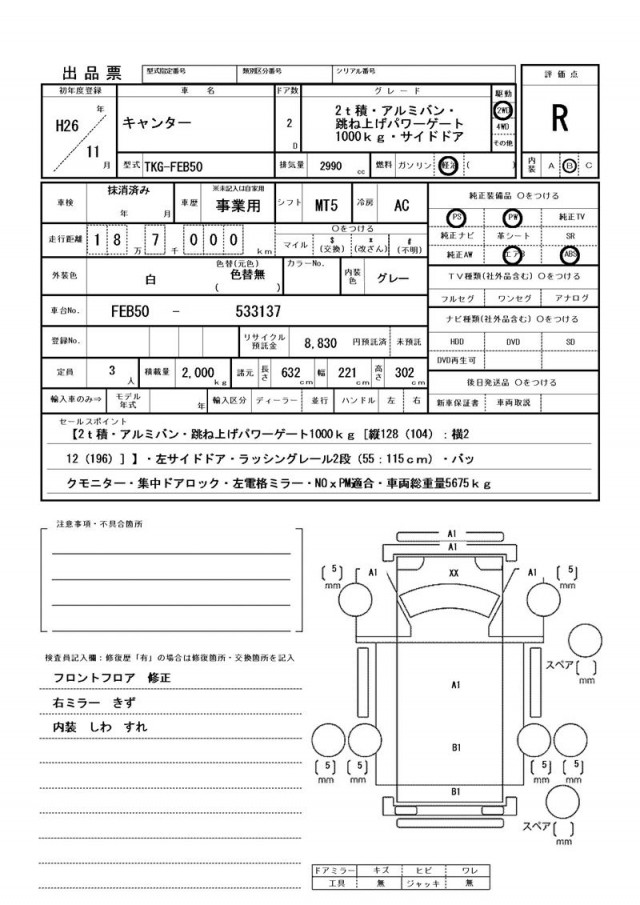 出品票 型式指定番号 類別区分番号 シリアル番号 評価点
初年度登録 車名 ドア数 グレード 駆動
H26年 11月 キャンター 2D 2t積・アルミバン・ 2WD R
跳ね上げパワーゲート 4WD
1000kg・サイドドア その他
型式 TKG-FEB50 排気量 2990cc 燃料 ガソリン 軽油 ( ) 内装 A B C
車検 抹消済み 年 月 車歴 ※未記入は自家用 事業用 シフト MT5 冷房 AC 純正装備品 ○をつける
走行距離 18万7千000km ○をつける マイル $(交換) *(改ざん) #(不明) PS PW 純正TV
純正ナビ 革シート SR
純正AW エアB ABS
外装色 白 色替(元色) 色替無 ( ) カラーNo. 内装色 グレー TV種類(社外品含む) ○をつける
フルセグ ワンセグ アナログ
車台No. FEB50 - 533137 ナビ種類(社外品含む) ○をつける
登録No. リサイクル預託金 8,830 円預託済 未預託 HDD DVD SD
DVD再生可
定員 3人 積載量 2,000kg 諸元 長さ 632cm 幅 221cm 高さ 302cm 後日発送品 ○をつける
輸入車のみ⇒ モデル年式 年 輸入区分 ディーラー 並行 ハンドル 左 右 新車保証書 車両取説
セールスポイント
【2t積・アルミバン・跳ね上げパワーゲート1000kg[縦128(104):横2
12(196)]】・左サイドドア・ラッシングレール2段(55:115cm)・バッ
クモニター・集中ドアロック・左電格ミラー・NOxPM適合・車両総重量5675kg
注意事項・不具合箇所
検査員記入欄:修復歴「有」の場合は修復箇所・交換箇所を記入
フロントフロア 修正
右ミラー きず
内装 しわ すれ
A1
A1
[5]mm A1 XX A1 [5]mm
スペア[ ]mm
A1
B1
[5]mm [5]mm B1 [5]mm [5]mm
スペア[ ]mm
ドアミラー キズ ヒビ ワレ
工具 無 ジャッキ 無